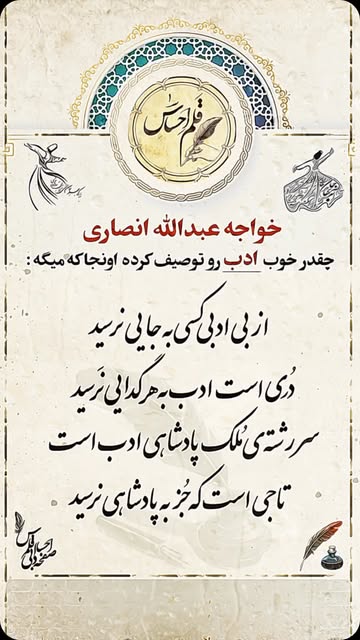 قلم احساس
خواجه عبدالله انصاری
چقدر خوب ادب رو توصیف کرده اونجا که میگه :
از بی ادبی کسی به جایی نرسید
دُری است ادب به هر گدایی نرسید
سررشته‌ی مُلک پادشاهی ادب است
تاجی است که جُز به پادشاهی نرسید